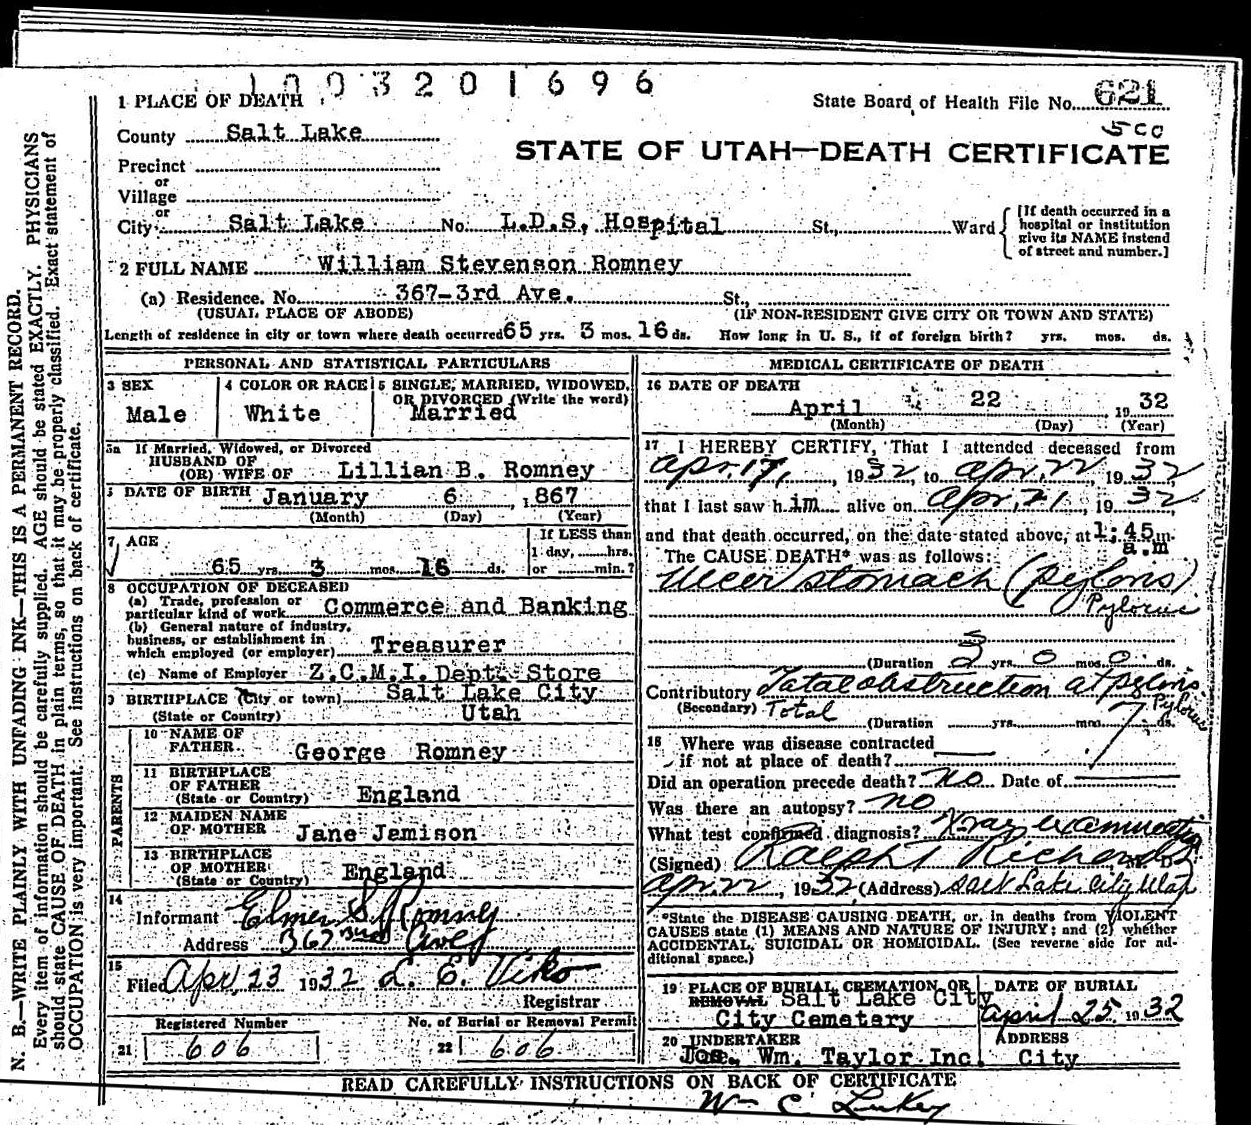 1003201696
1 PLACE OF DEATH
State Board of Health File No. 621
500
County Salt Lake
STATE OF UTAH—DEATH CERTIFICATE
Precinct
or
Village
or
City Salt Lake No. L.D.S. Hospital St., Ward
[If death occurred in a hospital or institution give its NAME instend of street and number.]
2 FULL NAME William Stevenson Romney
(a) Residence. No. 367-3rd Ave. St.,
(USUAL PLACE OF ABODE) (IF NON-RESIDENT GIVE CITY OR TOWN AND STATE)
Length of residence in city or town where death occurred 65 yrs. 3 mos. 16 ds. How long in U. S., if of foreign birth? yrs. mos. ds.
PERSONAL AND STATISTICAL PARTICULARS
3 SEX
Male
4 COLOR OR RACE
White
5 SINGLE, MARRIED, WIDOWED, OR DIVORCED (Write the word)
Married
5a If Married, Widowed, or Divorced
HUSBAND OF
(OR) WIFE OF Lillian B. Romney
DATE OF BIRTH January 6, 1867
(Month) (Day) (Year)
7 AGE
65 yrs. 3 mos. 16 ds.
If LESS than
1 day, hrs.
or min.?
8 OCCUPATION OF DECEASED
(a) Trade, profession or
particular kind of work Commerce and Banking
(b) General nature of industry,
business, or establishment in
which employed (or employer) Treasurer
(c) Name of Employer Z.C.M.I. Dept. Store
9 BIRTHPLACE (City or town) Salt Lake City
(State or Country) Utah
PARENTS
10 NAME OF
FATHER George Romney
11 BIRTHPLACE
OF FATHER
(State or Country) England
12 MAIDEN NAME
OF MOTHER Jane Jamison
13 BIRTHPLACE
OF MOTHER
(State or Country) England
14
Informant Elmer S. Romney
Address 367 3rd Ave
15
Filed Apr 23 1932 L. E. Viko
Registrar
Registered Number No. of Burial or Removal Permit
21 606 22 606
MEDICAL CERTIFICATE OF DEATH
16 DATE OF DEATH
April 22 1932
(Month) (Day) (Year)
17 I HEREBY CERTIFY, That I attended deceased from
Apr. 17, 1932, to Apr. 22, 1932
that I last saw him alive on Apr. 21, 1932
and that death occurred, on the date stated above, at 1:45 m.
a.m
The CAUSE DEATH* was as follows:
Ulcer stomach (pyloris)
Pylorus
(Duration yrs. 0 mos. 0 ds.
Contributory Total obstruction at pyloris
(Secondary) Total Pylorus
(Duration yrs. mos. 7 ds.
18 Where was disease contracted
if not at place of death?
Did an operation precede death? no Date of
Was there an autopsy? no
What test confirmed diagnosis? Xray examination
(Signed) Ralph T Richards M. D
Apr 22, 1932 (Address) Salt Lake City Utah
*State the DISEASE CAUSING DEATH, or, in deaths from VIOLENT
CAUSES state (1) MEANS AND NATURE OF INJURY; and (2) whether
ACCIDENTAL, SUICIDAL OR HOMICIDAL. (See reverse side for additional space.)
19 PLACE OF BURIAL, CREMATION, OR
REMOVAL Salt Lake City
City Cemetary
DATE OF BURIAL
April 25 1932
20 UNDERTAKER
Jos. Wm. Taylor Inc.
ADDRESS
City
READ CAREFULLY INSTRUCTIONS ON BACK OF CERTIFICATE
N. B.—WRITE PLAINLY WITH UNFADING INK—THIS IS A PERMANENT RECORD.
Every item of information should be carefully supplied. AGE should be stated EXACTLY. PHYSICIANS
should state CAUSE OF DEATH in plain terms, so that it may be properly classified. Exact statement of
OCCUPATION is very important. See instructions on back of certificate.